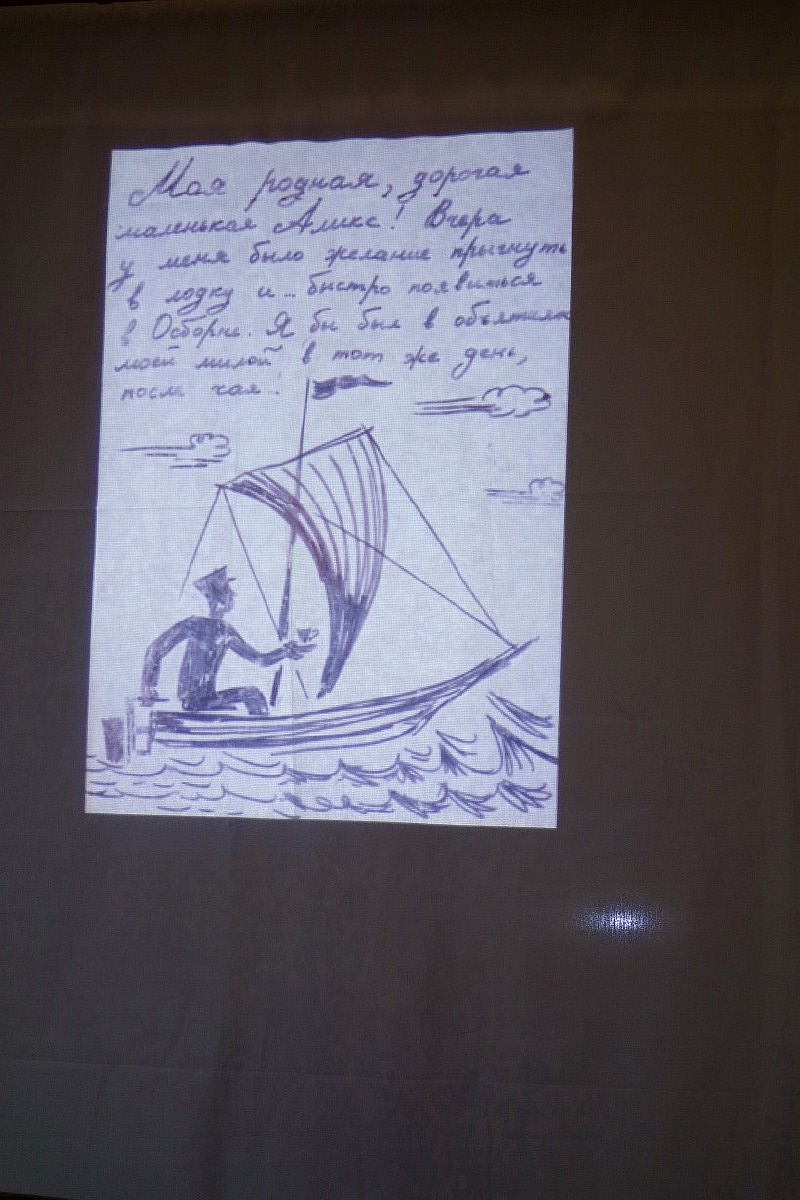 Моя родная, дорогая
маленькая Аликс! Вчера
у меня было желание прыгнуть
в лодку и... быстро появиться
в Осборне. Я бы был в объятиях
моей милой в тот же день,
после чая!